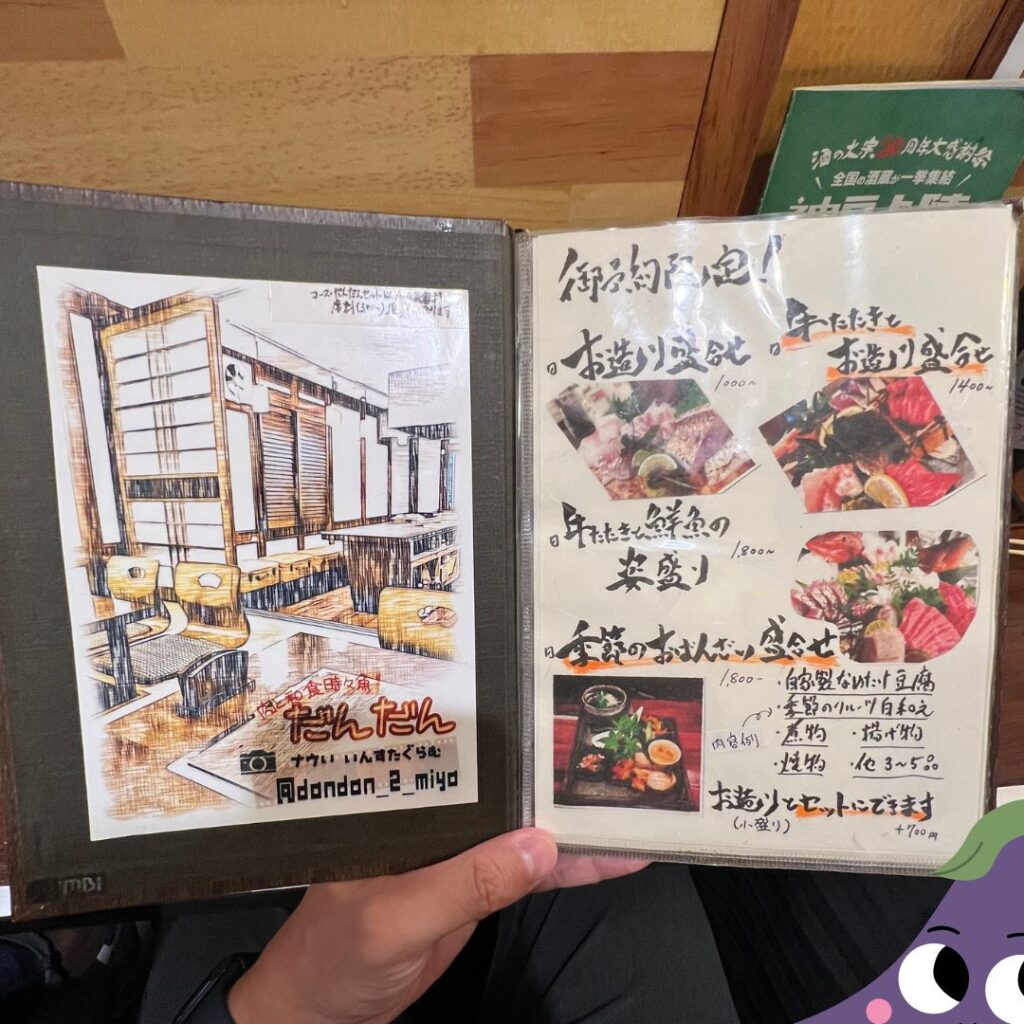 酒の大宗30周年大感謝祭
全国の酒蔵が一挙集結
肉と和食時々魚
だんだん
ナウい いんすたぐらむ
@dandan_2_miya
御予約限定!
お造り盛合せ
1000~
牛たたきと
お造り盛合せ
1400~
牛たたきと鮮魚の
姿盛り
1,800~
季節のおばんざい盛合せ
1,800-
・自家製なめたけ豆腐
・季節のフルーツ白和え
内容例
・煮物 ・揚げ物
・焼物 ・他3~5品
お造りとセットにできます
(小盛り)
+700円